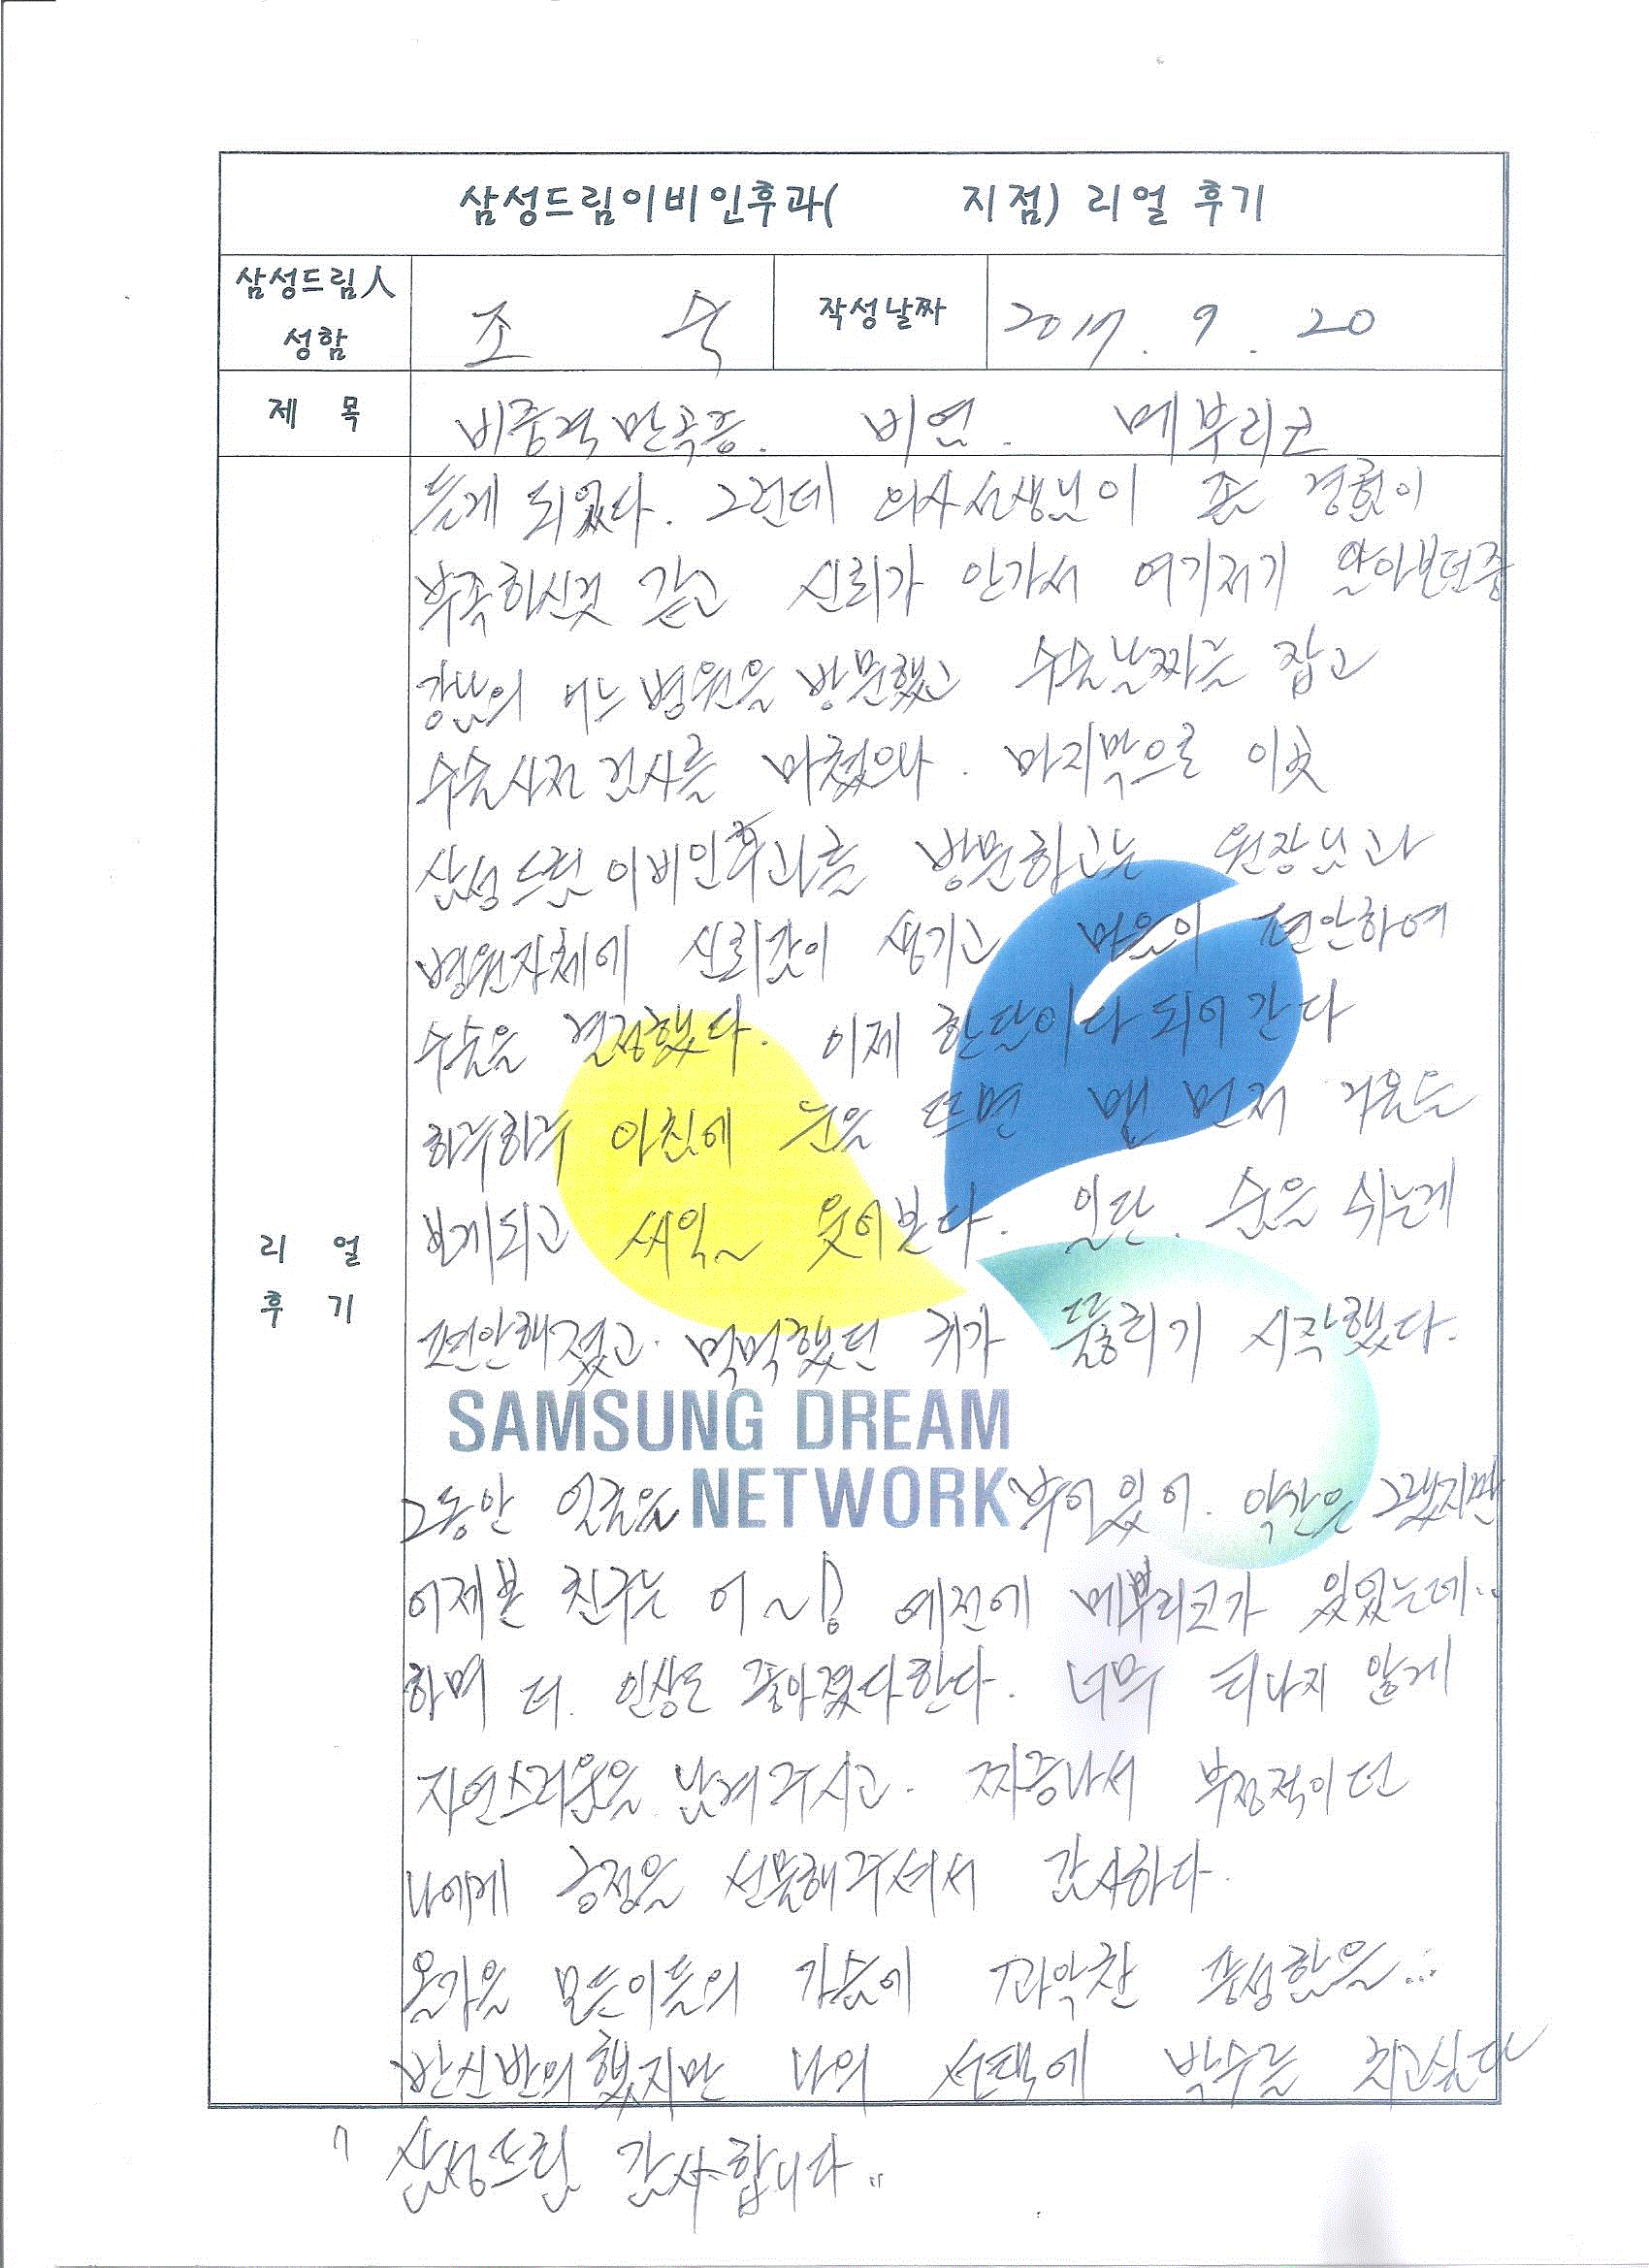 삼성드림이비인후과(          지점) 리얼 후기
삼성드림人
성함
조 숙
작성날짜
2017. 9. 20
제 목
비중격만곡증. 비염. 메부리코
리 얼
후 기
듣게 되었다. 그런데 의사선생님이 좀 경험이
부족하신것 같고 신뢰가 안가서 여기저기 알아보던중
강남의 어느 병원을 방문했고 수술날짜를 잡고
수술사전 검사를 마쳤으나. 마지막으로 이곳
삼성드림이비인후과를 방문하고는 원장님과
병원자체에 신뢰감이 생기고 마음이 편안하여
수술을 결정했다. 이제 한달이다 되어간다
하루하루 아침에 눈을 뜨면 맨 먼저 거울을
보게되고 씨익~ 웃어본다. 일단. 숨을 쉬는게
편안해졌고. 먹먹했던 귀가 뚫리기 시작했다.
SAMSUNG DREAM
NETWORK
그동안 얼굴을 부어있어. 약간은 그랬지만
어제본 친구는 어~! 예전에 메부리코가 있었는데..
하며 더. 인상도 좋아졌다한다. 너무 티나지 않게
자연스러움을 남겨주시고. 짜증나서 부정적이던
나에게 긍정을 선물해주셔서 감사하다.
올가을 모든이들의 가슴에 꽉찬 풍성함을...
반신반의했지만 나의 선택에 박수를 치고싶다
" 삼성드림 감사합니다.."